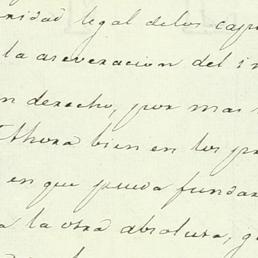 nidad legal de los cap
la aseveracion del in
n derecho, por mas
Ahora bien en los pr
en que pueda fundar
a la otra absoluta, q